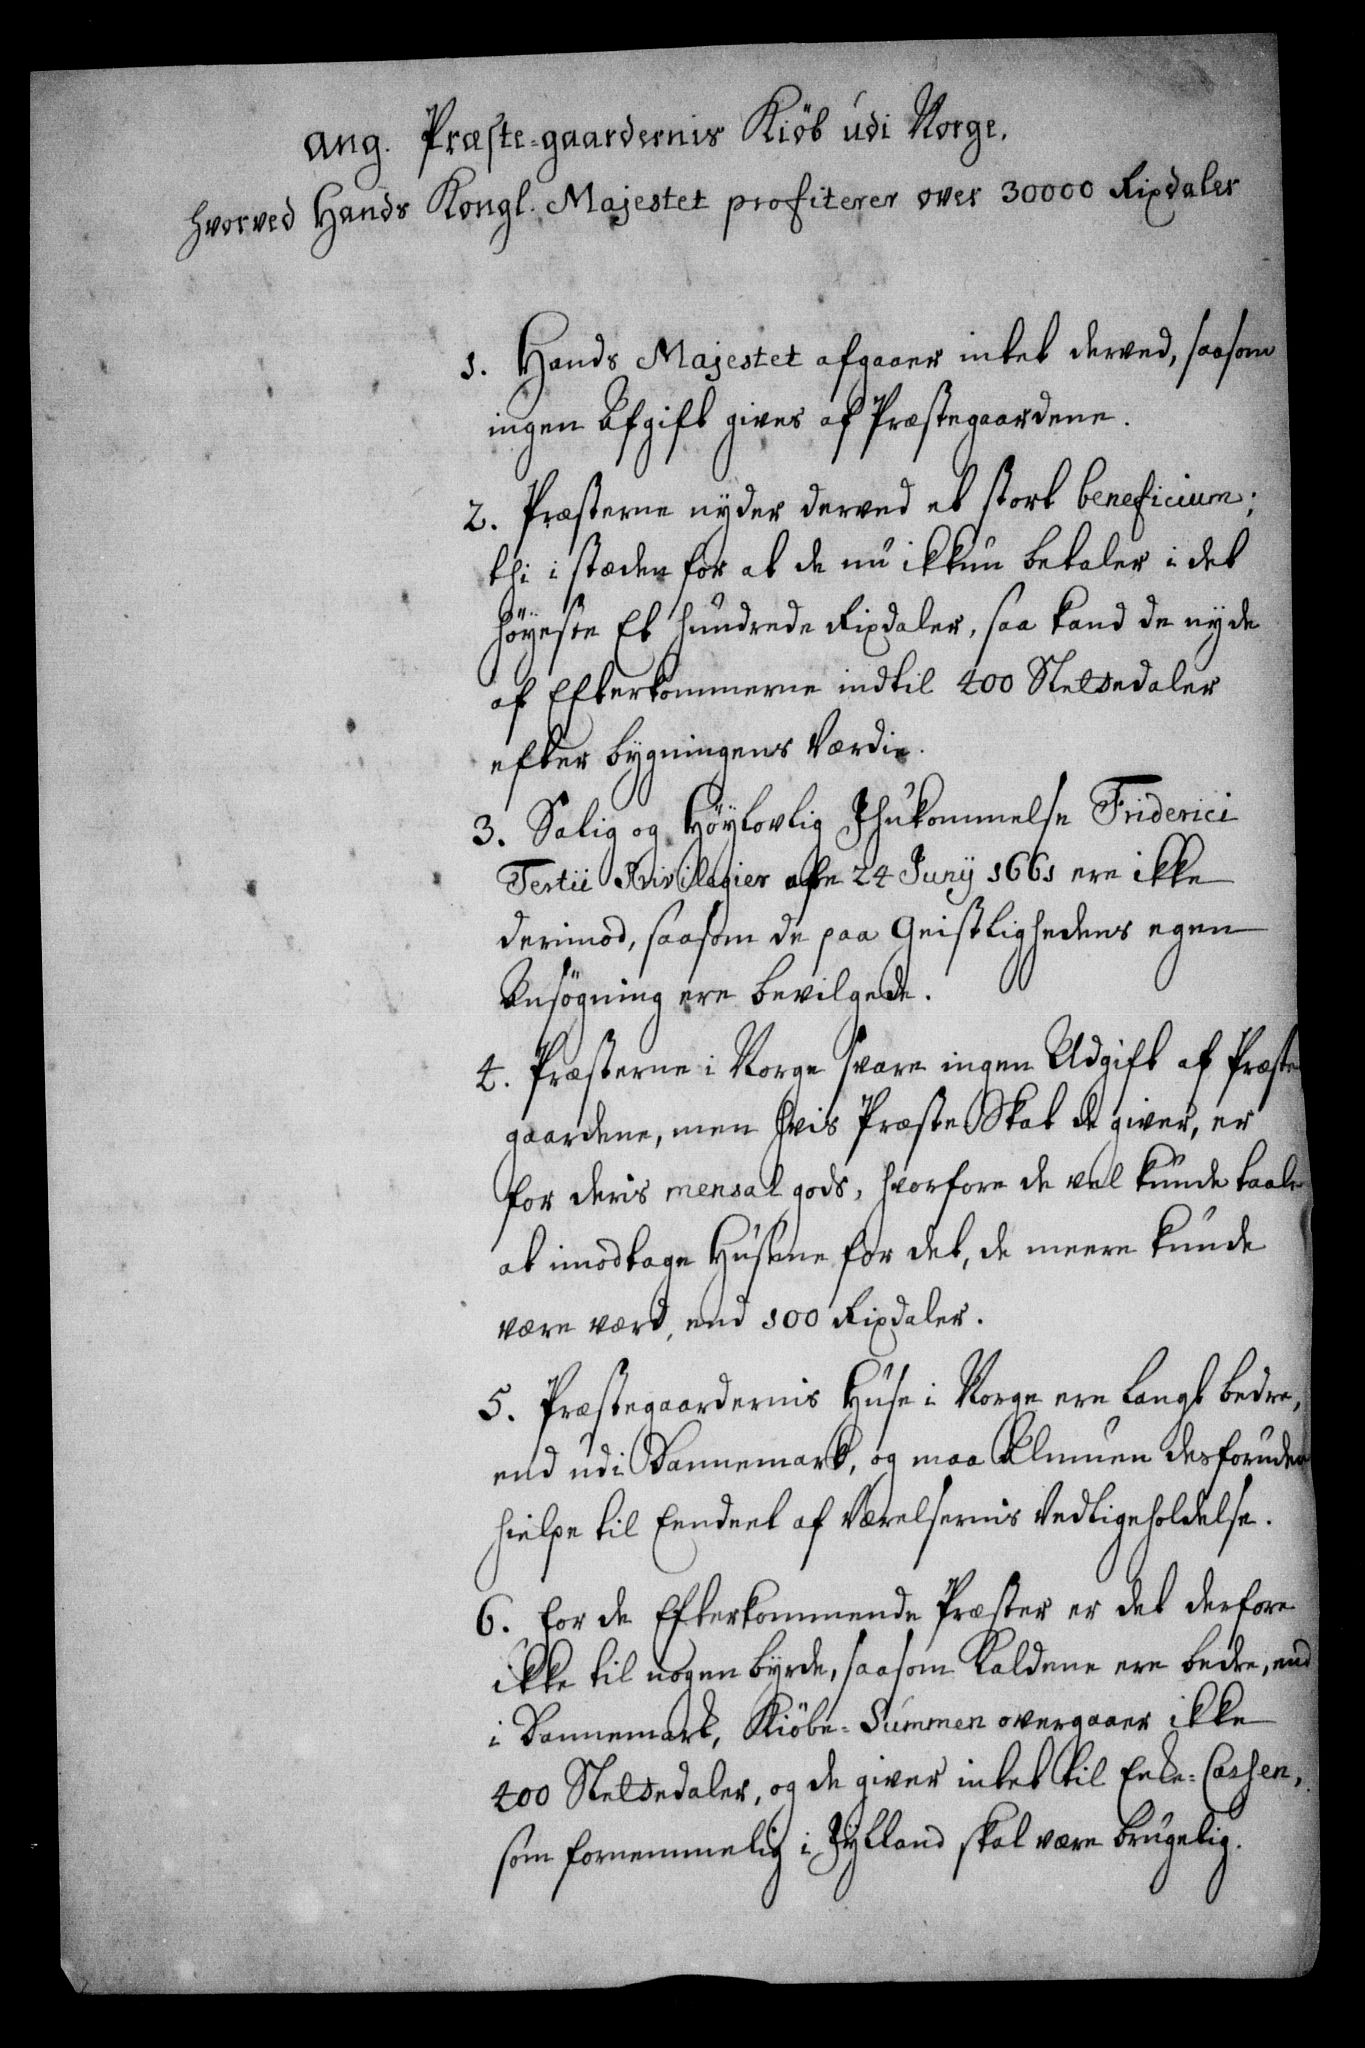 ang. Præste-gaardernis Kiöb udi Norge.
hvorved Hands Kongl. Majestet profiterer over 30000 Rixdaler
1. Hands Majestet afgaaer intet derved, saasom
ingen Afgift gives af Præstegaardene.
2. Præsterne nyder derved et stort beneficium;
thi i stæden for at de nu ikkun betaler i det
höyeste Et hundrede Rixdaler, saa kand de nyde
af Efterkommerne indtil 400 Sletdaler
efter bygningens Værdie.
3. Salig og Höylovlig Ihukommelse Friderici
Tertii Privilegier af 24 Junij 1661 ere ikke
derimod, saasom de paa Geistlighedens egen
Ansögning ere bevilgede.
4. Præsterne i Norge svare ingen Udgift af Præste
gaardene, men hvis Præste Skat de giver, er
for deris mensal gods, hvorfore de vel kunde taale
at imodtage Husene for det, de meere kunde
være værd, end 100 Rixdaler.
5. Præstegaardernis Huse i Norge ere langt bedre,
end udi Dannemark, og maa Almuen desforuden
hielpe til Eendeel af Værelsernis Vedligeholdelse.
6. For de Efterkommende Præster er det derfore
ikke til nogen byrde, saasom Kaldene ere bedre, end
i Dannemark, Kiöbe-Summen overgaaer ikke
400 Sletdaler, og de giver intet til Enke-Cassen,
som fornemmelig i Jylland skal være brugelig.